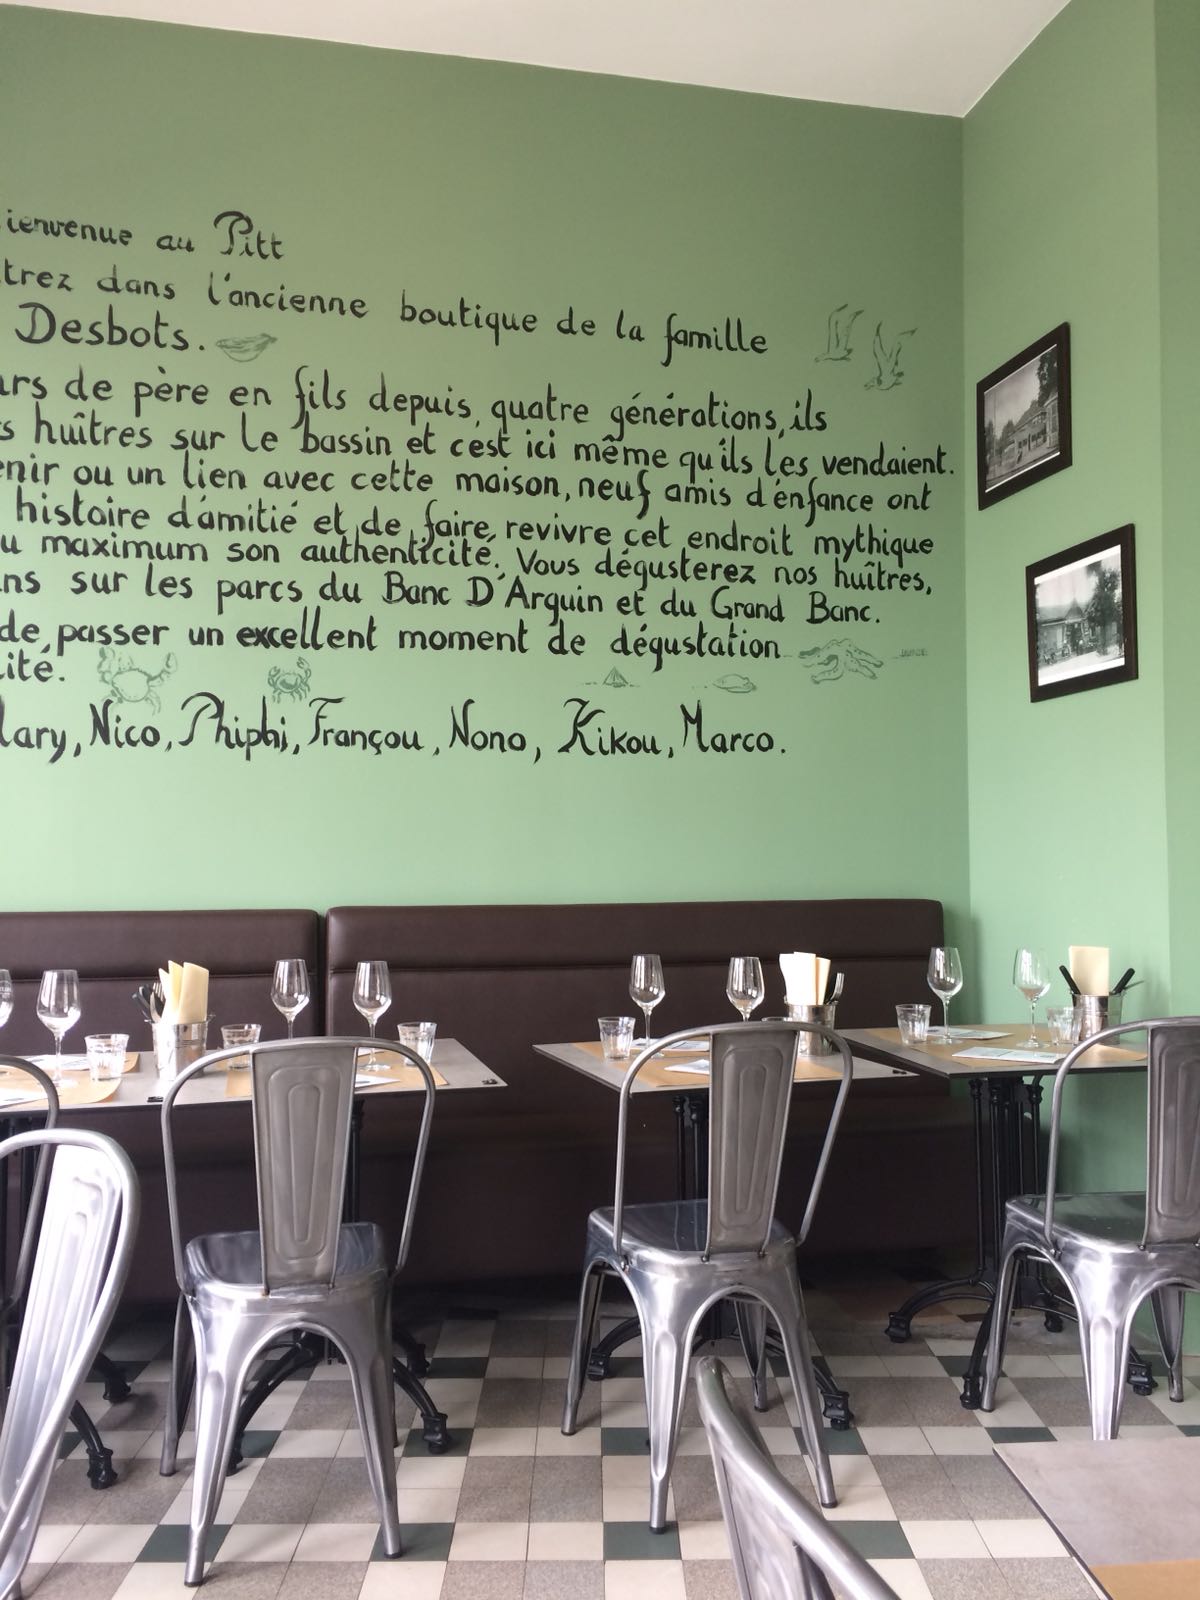 ienvenue au Pitt
trez dans l'ancienne boutique de la famille
Desbots.
urs de père en fils depuis, quatre générations, ils
s huîtres sur le bassin et c'est ici même qu'ils les vendaient.
enir ou un lien avec cette maison, neuf amis d'énfance ont
histoire d'amitié et de faire, revivre cet endroit mythique
u maximum son authenticité. Vous dégusterez nos huîtres,
ans sur les parcs du Banc D'Arguin et du Grand Banc.
de, passer un excellent moment de dégustation
ité.
lary, Nico, Phiphi, Françou, Nono, Kikou, Marco.